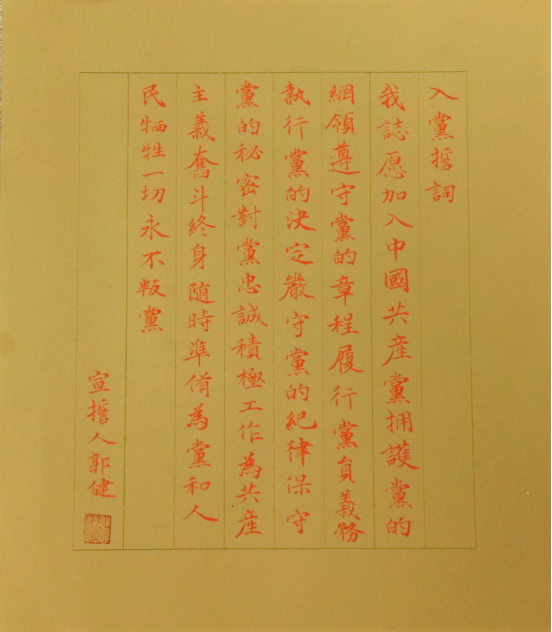 入黨誓詞
我誌愿加入中國共産黨拥護黨的
綱領遵守黨的章程履行黨員義務
執行黨的決定嚴守黨的紀律保守
黨的秘密對黨忠誠積極工作為共産
主義奮斗終身隨時準備為黨和人
民牺牲一切永不叛黨
宣誓人郭健